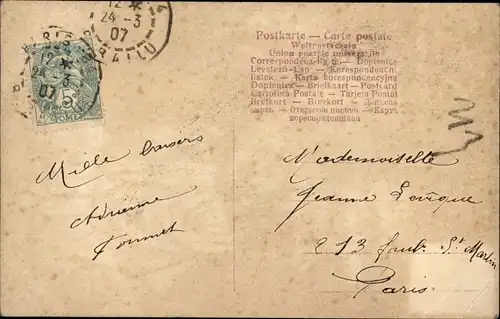 12 *
24-3
07
5
Postkarte — Carte postale
Weltpostverein
Union postale universelle
Correspondenz-Karte — Dopisnice
Levelező-Lap — Korespondenční
lístek — Karta korespondencyjna
Dopisnica — Briefkaart — Postcard
Cartolina Postale — Tarjeta Postal
Brefkort — Brevkort —
Mille baisers
Adrienne
Mademoiselle
Jeanne Levêque
213 faub. St Martin
Paris